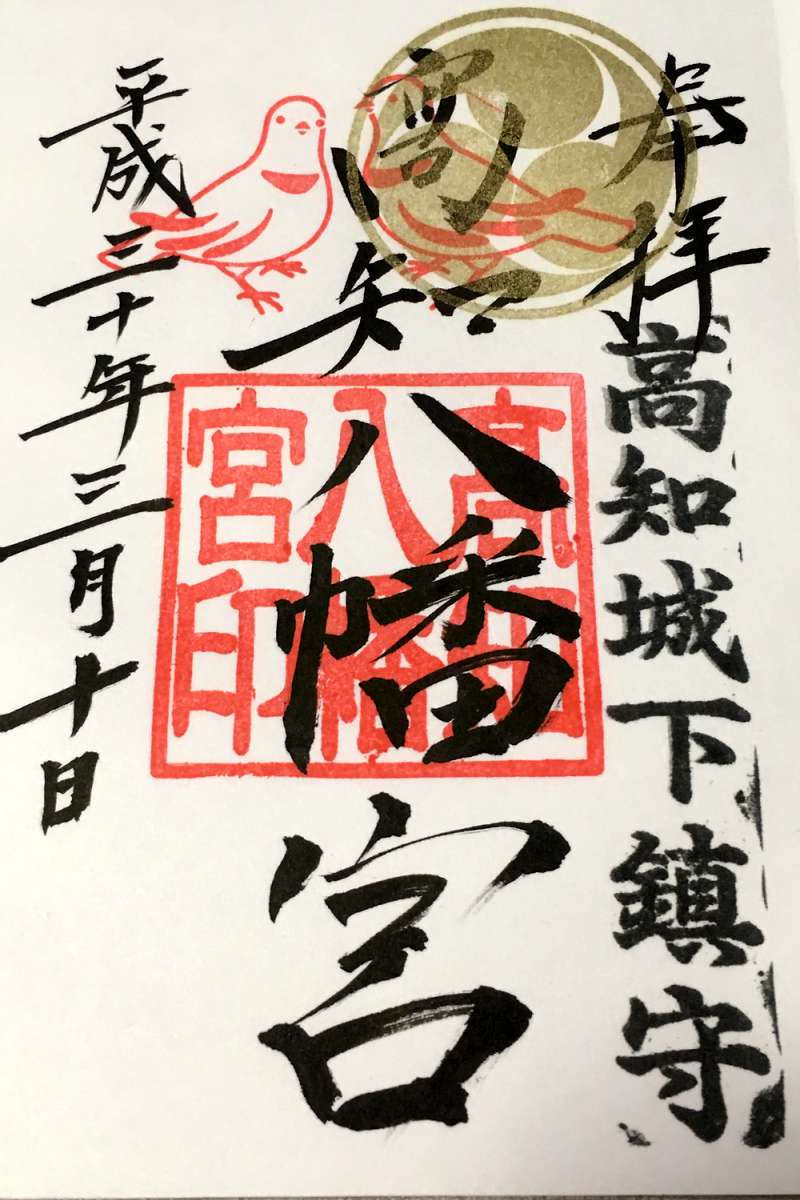 奉拝
高知城下鎮守
高知八幡宮
高知
八幡
宮印
平成三十年三月十日